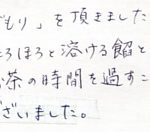 もり」を頂きました
ろほろと溶ける餡と
お茶の時間を過すこ
ざいました。